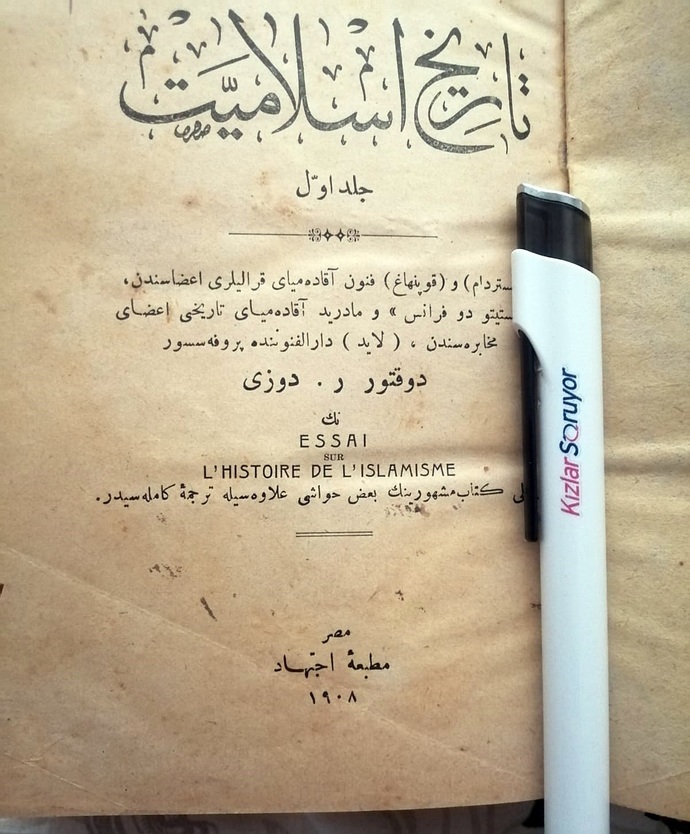 تاريخ اسلاميّت
جلد اوّل
و (قوپنهاغ) فنون آقاده‌ميای قراليلری اعضاسندن،
دو فرانس » و مادريد آقاده‌ميای تاريخی اعضای
مخابره‌سندن ، ( لايد ) دارالفنوننده پروفه‌سسور
دوقتور ر . دوزی
نك
ESSAI
SUR
L'HISTOIRE DE L'ISLAMISME
كتاب مشهورينك بعض حواشی علاوه‌سيله ترجمهٔ كامله‌سيدر.
مصر
مطبعهٔ اجتهاد
١٩٠٨
KızlarSoruyor